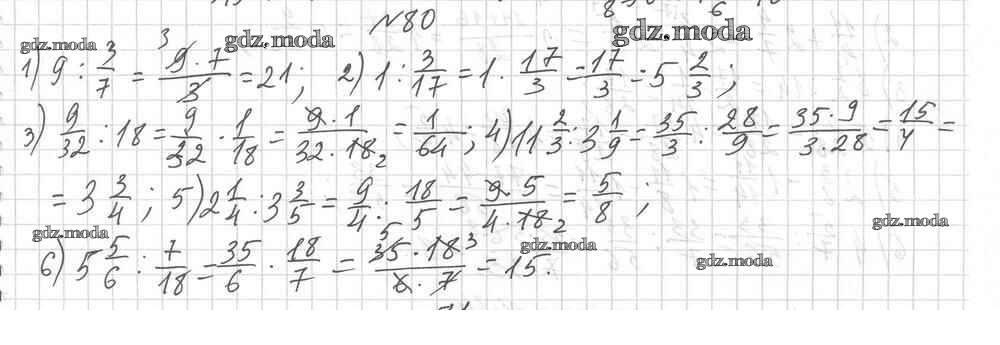 №80
gdz.moda gdz.moda gdz.moda
1) 9 : 3/7 = 9·7/3 = 21; 2) 1 : 3/17 = 1 · 17/3 = 17/3 = 5 2/3;
3) 9/32 : 18 = 9/32 · 1/18 = 9·1/32·18 = 1/64; 4) 11 2/3 : 3 1/9 = 35/3 : 28/9 = 35·9/3·28 = 15/4 =
= 3 3/4; 5) 2 1/4 : 3 3/5 = 9/4 : 18/5 = 9·5/4·18 = 5/8;
gdz.moda gdz.moda gdz.moda gdz.moda
6) 5 5/6 : 7/18 = 35/6 · 18/7 = 35·18/6·7 = 15.